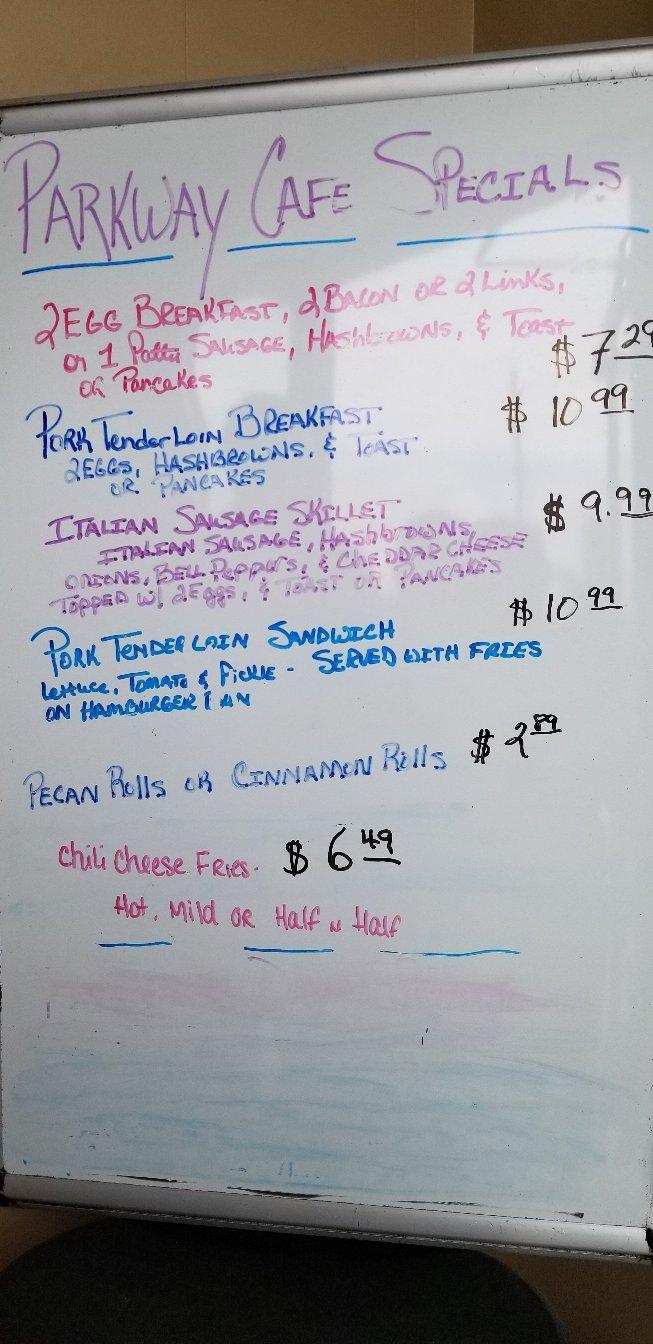 PARKWAY CAFE SPECIALS
2 EGG BREAKFAST, 2 BACON OR 2 Links,
or 1 Patty SAUSAGE, HAShbrowNS, & Toast
OR Pancakes
$ 7 29
PORK TenderLoin BREAKFAST
$ 10 99
2EGGS, HASHBROWNS, & TOAST
OR PANCAKES
ITALIAN SAUSAGE SKILLET
$ 9.99
ITALIAN SAUSAGE, HAShbrowNS,
ONIONS, BELL PEPPERS, & CHEDDAR CHEESE
TOPPED W/ 2Eggs, & TOAST OR PANCAKES
$ 10 99
PORK TENDERLOIN SANDWICH
Lettuce, TOMATO & PICKLE - SERVED WITH FRIES
ON HAMBURGER
PECAN Rolls OR CINNAMON Rolls $ 2 89
Chili Cheese FRIES. $ 6 49
Hot, Mild OR Half N Half